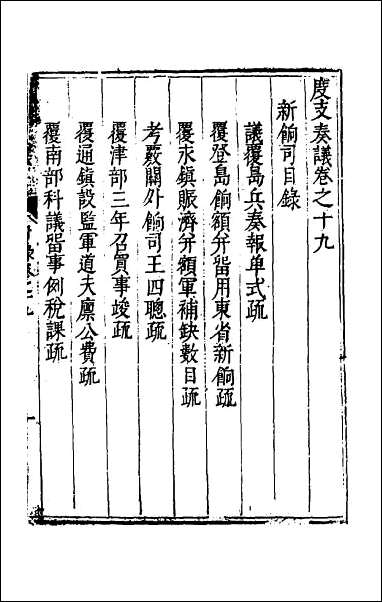 度支奏議卷之十九
新餉司目錄
議覆島兵奏報单式疏
覆登島餉額并畱用東省新餉疏
覆永鎮賑濟并額軍補缺数目疏
考覈關外餉司王四聰疏
覆津部三年召買事竣疏
覆通鎮設監軍道夫廪公費疏
覆南部科議畱事例稅課疏